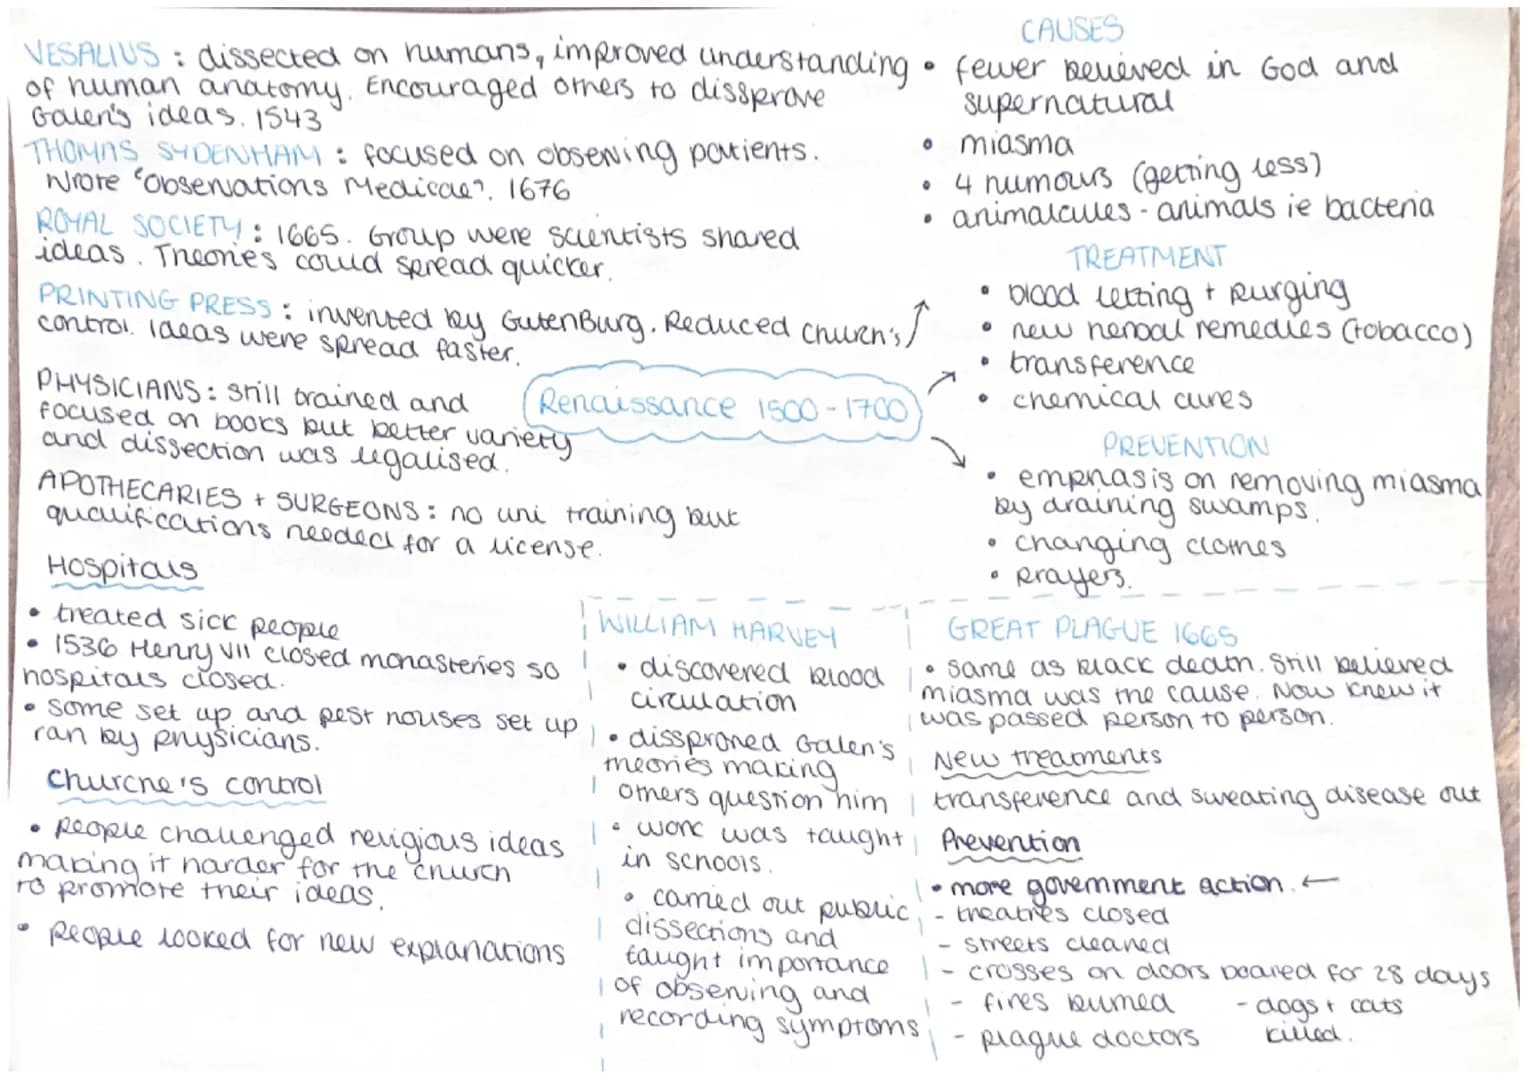 VESALIUS : dissected on humans, improved understanding
of human anatomy. Encouraged others to dissprove
Galen's ideas. 1543
THOMAS SYDENHAM : focused on observing patients.
Wrote "Observations Medicae". 1676
ROYAL SOCIETY : 1665. Group were scientists shared
ideas. Theories could spread quicker.
PRINTING PRESS : invented by GutenBurg. Reduced church's
control. Ideas were spread faster.
PHYSICIANS : still trained and
focused on books but better variety
and dissection was legalised.
APOTHECARIES + SURGEONS : no uni training but
qualifications needed for a license.
Hospitals
• treated sick people
• 1536 Henry VII closed monasteries so
hospitals closed.
• some set up and pest houses set up
ran by physicians.
Churche's control
• People challenged religious ideas
making it harder for the church
to promote their ideas.
• People looked for new explanations
Renaissance 1500-1700
CAUSES
• fewer believed in God and
supernatural
• miasma
• 4 humours (getting less)
• animalcules - animals ie bacteria
TREATMENT
• blood letting + purging
• new herbal remedies (tobacco)
• transference
• chemical cures
PREVENTION
• emphasis on removing miasma
by draining swamps.
• changing clothes
• Prayers.
WILLIAM HARVEY
• discovered blood
circulation
• dissproned Galen's
theories making
others question him
• work was taught
in schools.
• carried out public
dissections and
taught importance
of observing and
recording symptoms
GREAT PLAGUE 1665
• same as black death. Still believed
miasma was the cause. Now knew it
was passed person to person.
New treatments
transference and sweating disease out
Prevention
• more government action. ←
- theatres closed
- streets cleaned
- crosses on doors boared for 28 days
- fires burned - dogs + cats
- plague doctors killed.